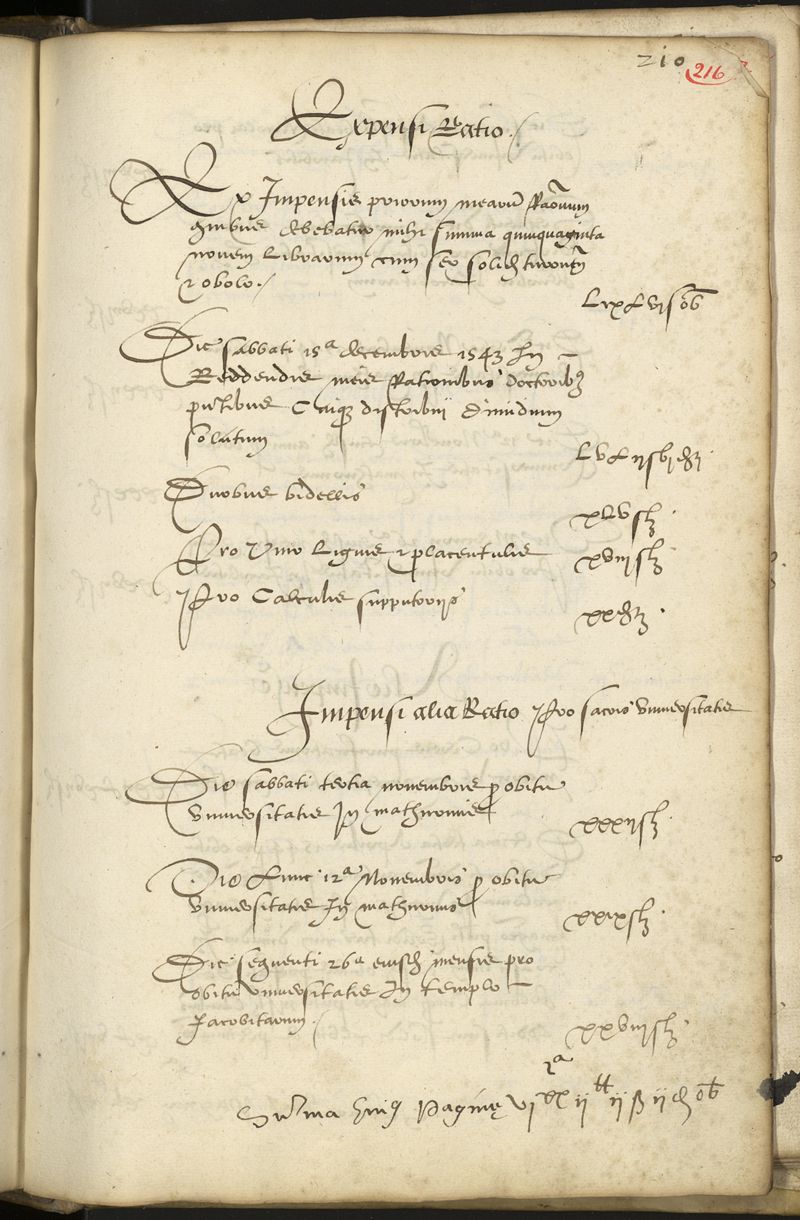 210
216
Expensi Ratio.
Ex Impensis priorum mearum Rationum
quibus debebatur mihi summa quinquaginta
novem Librarum cum sex solid turon
& obolo.
Die sabbati 15ª decembris 1543 In
Reddendis meis Rationibus Doctorib
Cuiq distribui dimidium
solatum
Duobus bidellis
xlv
Pro Vino Lignis & placentulis
xviij
Pro Calculis supputoriis
xx
Impensi alia Ratio Pro sacris Universitatis
Die sabbati tertia novembris p obitu
Universitatis In mathurinis
xxxij
Die Lune 12ª Novembris p obitu
Universitatis In mathurinis
xxix
Die sequenti 26ª eiusd mensis pro
obitu universitatis In templo
Jacobitarum.
xxviij
Summa huiꝰ Paginę vjxx ij ij ß ij d ob